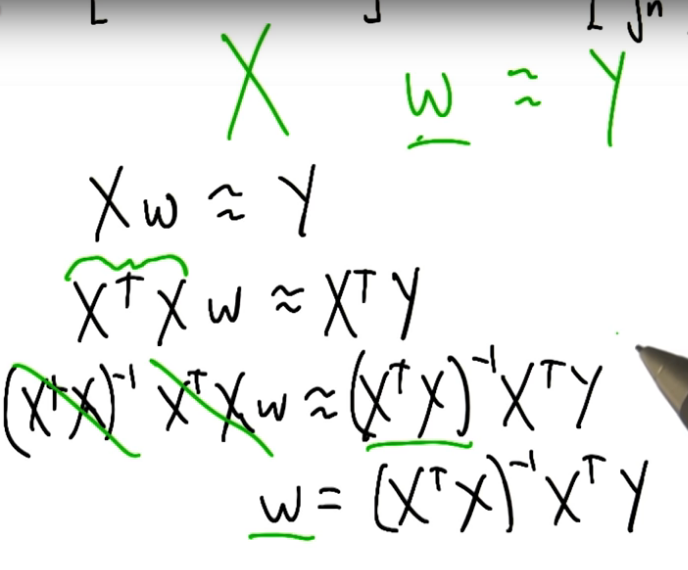 [ ] [ ]ⁿ
X w ≈ Y
Xw ≈ Y
XᵀX w ≈ XᵀY
(XᵀX)⁻¹ XᵀX w ≈ (XᵀX)⁻¹XᵀY
w = (XᵀX)⁻¹XᵀY